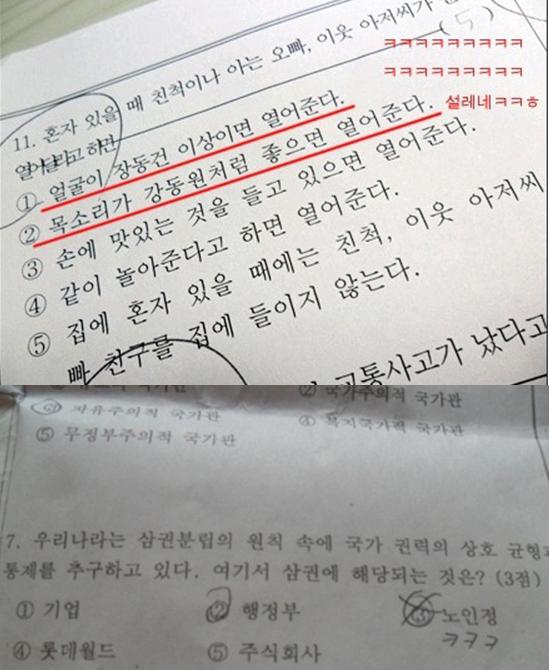 11. 혼자 있을 때 친척이나 아는 오빠, 이웃 아저씨가
열어달라고 하면
( 5 )
ㅋㅋㅋㅋㅋㅋㅋㅋㅋ
ㅋㅋㅋㅋㅋㅋㅋㅋㅋ
① 얼굴이 장동건 이상이면 열어준다.
설레네ㅋㅋㅎ
② 목소리가 강동원처럼 좋으면 열어준다.
③ 손에 맛있는 것을 들고 있으면 열어준다.
④ 같이 놀아준다고 하면 열어준다.
⑤ 집에 혼자 있을 때에는 친척, 이웃 아저씨
빠 친구를 집에 들이지 않는다.
교통사고가 났다고
국가관 ② 국가주의적 국가관
③ 자유주의적 국가관 ④ 복지국가적 국가관
⑤ 무정부주의적 국가관
7. 우리나라는 삼권분립의 원칙 속에 국가 권력의 상호 균형과
통제를 추구하고 있다. 여기서 삼권에 해당되는 것은? (3점)
① 기업 ② 행정부 ③ 노인정
ㅋㅋㅋ
④ 롯데월드 ⑤ 주식회사